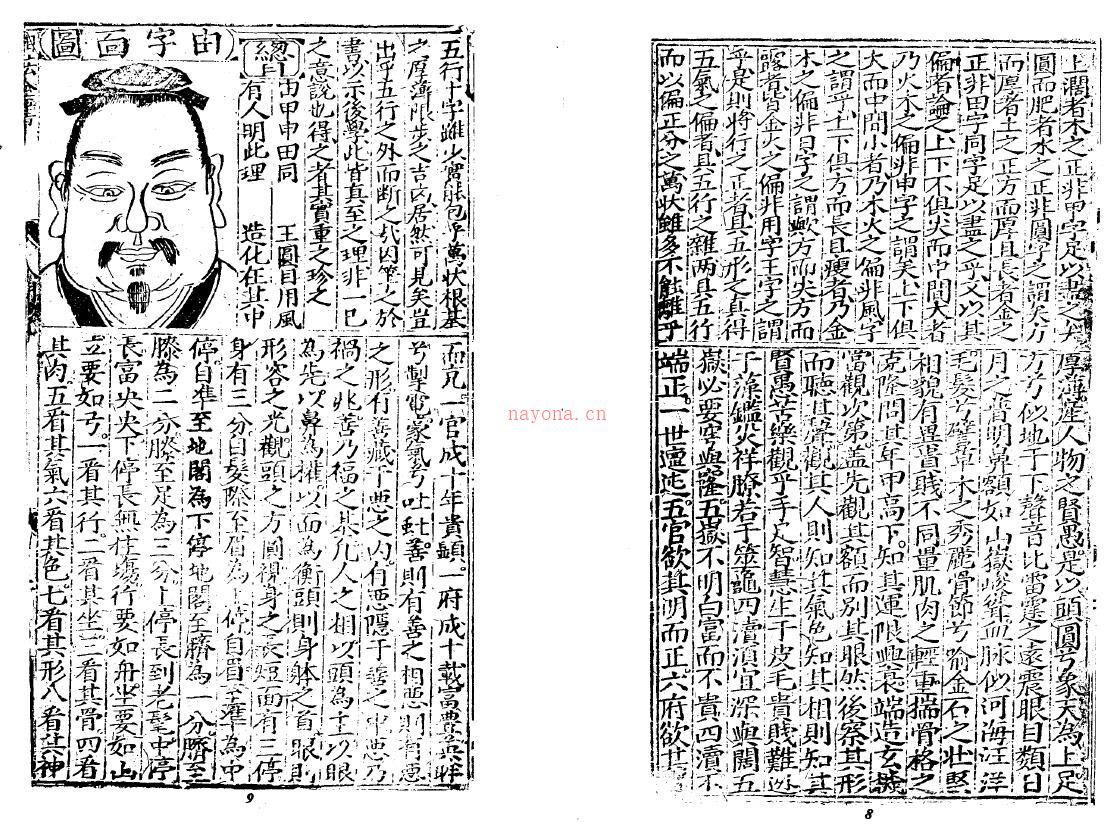 上濶者木之正非甲字足以盡之矣
圓而肥者水之正非圓字之謂矣方
而厚者土之正方而厚且長者金之
正非田字同字足以盡之乎又以其
偏者論之上下不俱尖而中間大者
乃火木之偏非申字之謂矣上下俱
大而中間小者乃木火之偏非風字
之謂乎上下俱方而長且瘦者乃金
木之偏非目字之謂歟方而尖方而
露者皆金火之偏非用字王字之謂
乎是則將行之正者具五形之真得
五氣之偏者具五行之雜两具五行
而以偏正分之萬狀雖多不能離乎
厚薄産人物之賢愚是以頭圓兮象天為上足
方兮似地于下聲音比雷霆之遠震眼目類日
月之齊明鼻額如山嶽峻聳血脉似河海汪洋
毛髮兮譬草木之秀麗骨節兮喻金石之壯堅
相貌有異貴賤不同量肌肉之輕重揣骨格之
隆問其年甲高下知其運限興衰端造玄
當觀次第盖先觀其額而别其眼然後察其形
而聽其聲觀其人則知其氣色知其相則知其
賢愚苦樂觀乎手足智慧生于皮毛貴賤難逃
于藻鑑災祥瞭若于筮龜四瀆湏宜深與闊五
嶽必要穹與隆五嶽不明白富而不貴四瀆不
端正一世邅迍五官欲其明而正六府欲其
8
五行十字雖少實能包乎萬狀根基
之厚薄限步之吉凶居然可見矣豈
出乎五行之外而断之哉因筆之於
書以示後學此皆真至之理非一已
之意說也得之者其實重之珍之
總目
由甲申田同 王圓目用風
有人明此理 造化在其中
由字面圖
而克一官成十年貴顯一府成十載富豊英
兮掣電豪氣兮吐虹善則有善之相惡則有惡
之形有善藏于惡之内有惡隱于善之中惡乃
禍之兆善乃福之基凡人之相以頭為主以眼
為先以鼻為權以面為衡頭則身體之首眼則
形容之光觀頭之方圓視身之長短面有三停
身有三分自髮際至眉為上停自眉至準為中
停自準至地閣為下停地閣至臍為一分臍至
膝為二分膝至足為三分上停長到老髦中停
長富央央下停長無徃塲行要如舟坐要如山
立要如兮一看其行二看其坐三看其骨四看
其肉五看其氣六看其色七看其形八看其神
9
nayona.cn